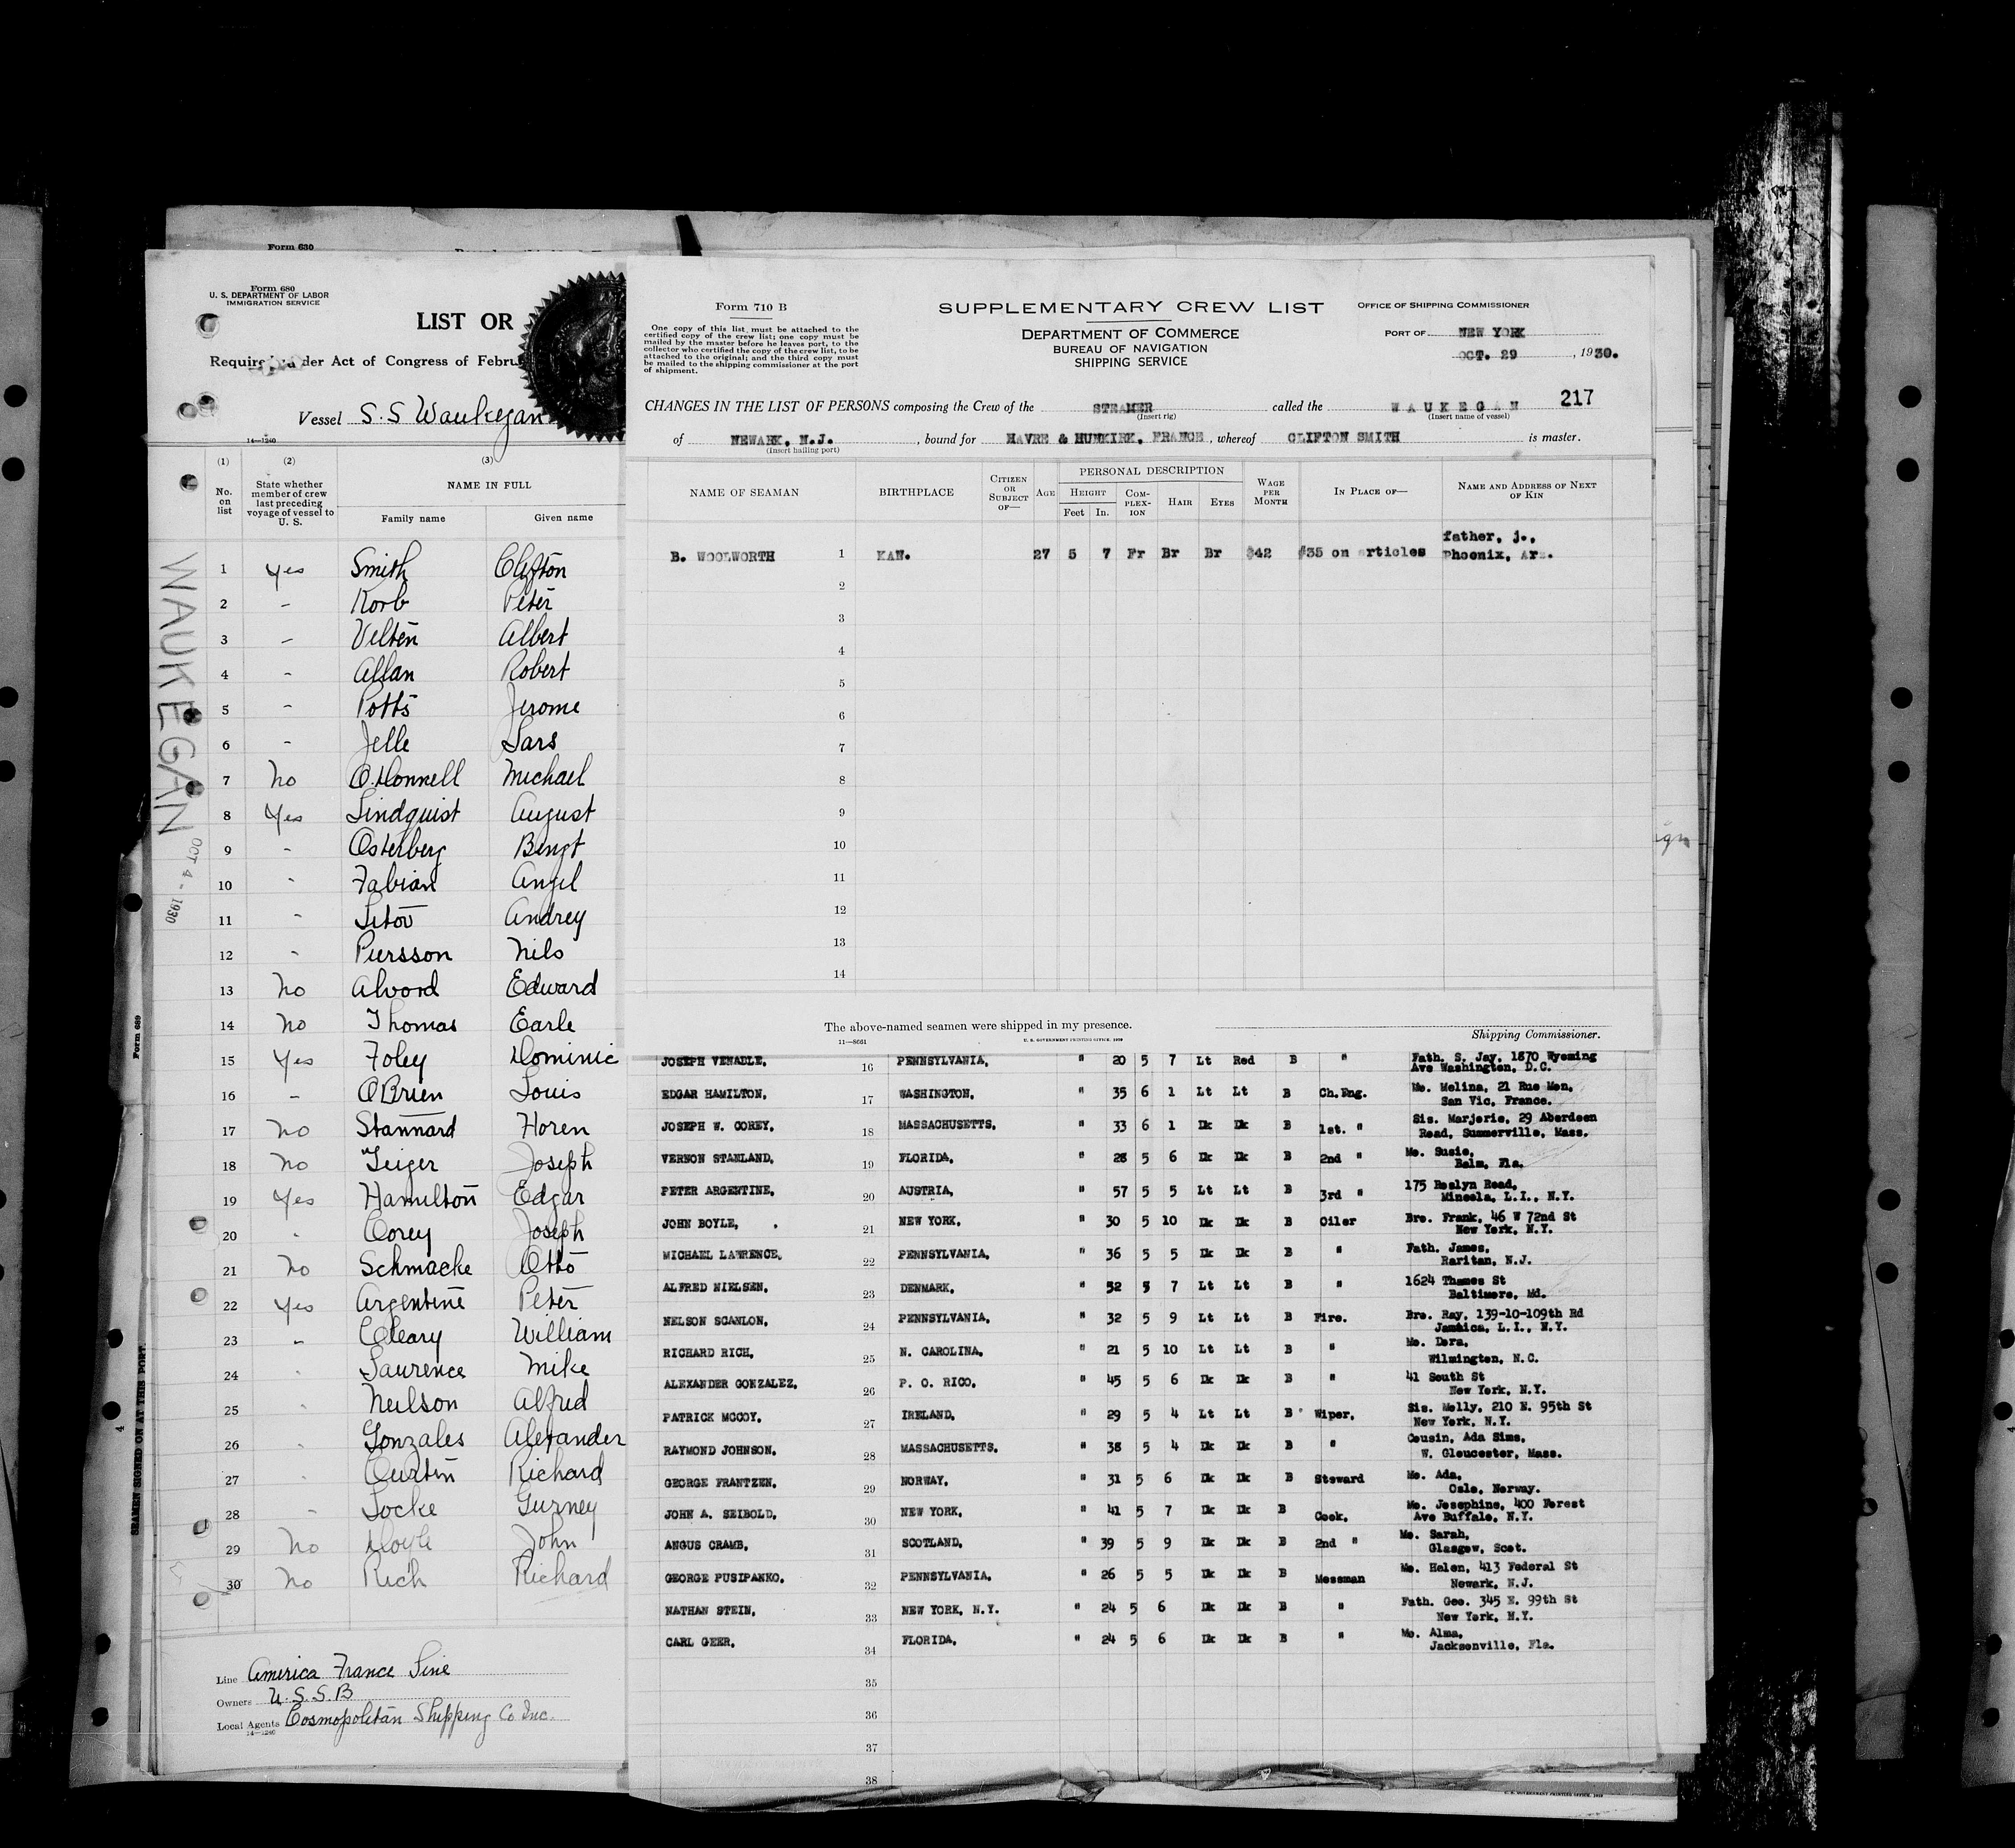 Form 630
Form 680
U. S. DEPARTMENT OF LABOR
IMMIGRATION SERVICE
LIST OR
Required under Act of Congress of Febru
Vessel S.S Waukegan
14—1240
(1) (2) (3)
No. on list
State whether member of crew last preceding voyage of vessel to U. S.
NAME IN FULL
Family name Given name
WAUKEGAN
OCT 4 - 1930
1 Yes Smith Clifton
2 - Korb Peter
3 - Velten Albert
4 - Allan Robert
5 - Potts Jerome
6 - Jelle Lars
7 No O'Donnell Michael
8 Yes Lindquist August
9 - Osterberg Bengt
10 - Fabian Angel
11 - Titov Andrey
12 - Piersson Nils
13 No Alvord Edward
14 No Thomas Earle
15 Yes Foley Dominic
16 - OBrien Louis
17 No Stannard Horen
18 No Geiger Joseph
19 Yes Hamilton Edgar
20 - Corey Joseph
21 No Schmacke Otto
22 Yes Argentine Peter
23 - Cleary William
24 - Laurence Mike
25 - Neilson Alfred
26 - Gonzales Alexander
27 - Curtin Richard
28 - Locke Gurney
29 No Doyle John
30 No Rich Richard
Line America France Line
Owners U.S.S.B
Local Agents Cosmopolitan Shipping Co Inc.
14—1240
Form 689
SEAMEN SIGNED ON AT THIS PORT.
4
Form 710 B
One copy of this list must be attached to the
certified copy of the crew list; one copy must be
mailed by the master before he leaves port, to the
collector who certified the copy of the crew list, to be
attached to the original; and the third copy must
be mailed to the shipping commissioner at the port
of shipment.
SUPPLEMENTARY CREW LIST
DEPARTMENT OF COMMERCE
BUREAU OF NAVIGATION
SHIPPING SERVICE
OFFICE OF SHIPPING COMMISSIONER
PORT OF NEW YORK
OCT. 29, 1930.
217
CHANGES IN THE LIST OF PERSONS composing the Crew of the STEAMER called the WAUKEGAN
(Insert rig) (Insert name of vessel)
of NEWARK, N.J., bound for HAVRE & HUNKIRK, FRANCE, whereof CLIFTON SMITH is master.
(Insert hailing port)
NAME OF SEAMAN BIRTHPLACE CITIZEN OR SUBJECT OF— AGE PERSONAL DESCRIPTION HEIGHT Feet In. COMPLEX-ION HAIR EYES WAGE PER MONTH IN PLACE OF— NAME AND ADDRESS OF NEXT OF KIN
father, j.,
B. WOOLWORTH 1 KAN. 27 5 7 Fr Br Br $42 #35 on articles Phoenix, Arz.
2
3
4
5
6
7
8
9
10
11
12
13
14
The above-named seamen were shipped in my presence.
Shipping Commissioner.
11—8661 U. S. GOVERNMENT PRINTING OFFICE. 1929
JOSEPH VENABLE, 16 PENNSYLVANIA, " 20 5 7 Lt Red B " Fath. S. Jay, 1870 Wyoming
Ave Washington, D.C.
EDGAR HAMILTON, 17 WASHINGTON, " 35 6 1 Lt Lt B Ch.Eng. Mo. Melina, 21 Rue Mon,
San Vic, France.
JOSEPH W. COREY, 18 MASSACHUSETTS, " 33 6 1 Dk Dk B 1st. " Sis. Marjorie, 29 Aberdeen
Road, Summerville, Mass.
VERNON STANLAND, 19 FLORIDA, " 28 5 6 Dk Dk B 2nd " Mo. Susie,
Balm, Fla.
PETER ARGENTINE, 20 AUSTRIA, " 57 5 5 Lt Lt B 3rd " 175 Roslyn Road,
Mineola, L.I., N.Y.
JOHN BOYLE, 21 NEW YORK, " 30 5 10 Dk Dk B Oiler Bro. Frank, 46 W 72nd St
New York, N.Y.
MICHAEL LAWRENCE, 22 PENNSYLVANIA, " 36 5 5 Dk Dk B " Fath. James,
Raritan, N.J.
ALFRED NIELSEN, 23 DENMARK, " 52 5 7 Lt Lt B " 1624 Thames St
Baltimore, Md.
NELSON SCANLON, 24 PENNSYLVANIA, " 32 5 9 Lt Lt B Fire. Bro. Ray, 139-10-109th Rd
Jamaica, L.I., N.Y.
RICHARD RICH, 25 N. CAROLINA, " 21 5 10 Lt Lt B " Mo. Dora,
Wilmington, N.C.
ALEXANDER GONZALEZ, 26 P. O. RICO, " 45 5 6 Dk Dk B " 41 South St
New York, N.Y.
PATRICK MCCOY, 27 IRELAND, " 29 5 4 Lt Lt B Wiper, Sis. Molly, 210 E. 95th St
New York, N.Y.
RAYMOND JOHNSON, 28 MASSACHUSETTS. " 38 5 4 Dk Dk B " Cousin, Ada Sims,
W. Gloucester, Mass.
GEORGE FRANTZEN, 29 NORWAY, " 31 5 6 Dk Dk B Steward Mo. Ada,
Oslo, Norway.
JOHN A. SEIBOLD, 30 NEW YORK, " 41 5 7 Dk Dk B Cook, Mo. Josephine, 400 Forest
Ave Buffalo, N.Y.
ANGUS CRAMB, 31 SCOTLAND, " 39 5 9 Dk Dk B 2nd " Mo. Sarah,
Glasgow, Scot.
GEORGE PUSIPANKO, 32 PENNSYLVANIA, " 26 5 5 Dk Dk B Messman Mo. Helen, 413 Federal St
Newark, N.J.
NATHAN STEIN, 33 NEW YORK, N.Y. " 24 5 6 Dk Dk B " Fath. Geo. 345 E. 99th St
New York, N.Y.
CARL GEER, 34 FLORIDA, " 24 5 6 Dk Dk B " Mo. Alma,
Jacksonville, Fla.
35
36
37
38
U. S. GOVERNMENT PRINTING OFFICE. 1929